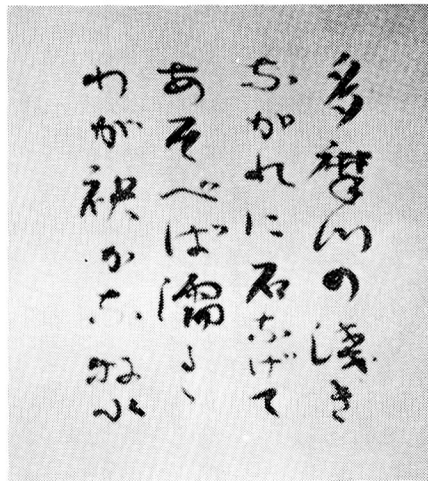 多摩川の浅き
ながれに石なげて
あそべば濡るゝ
わが袂かな 牧水